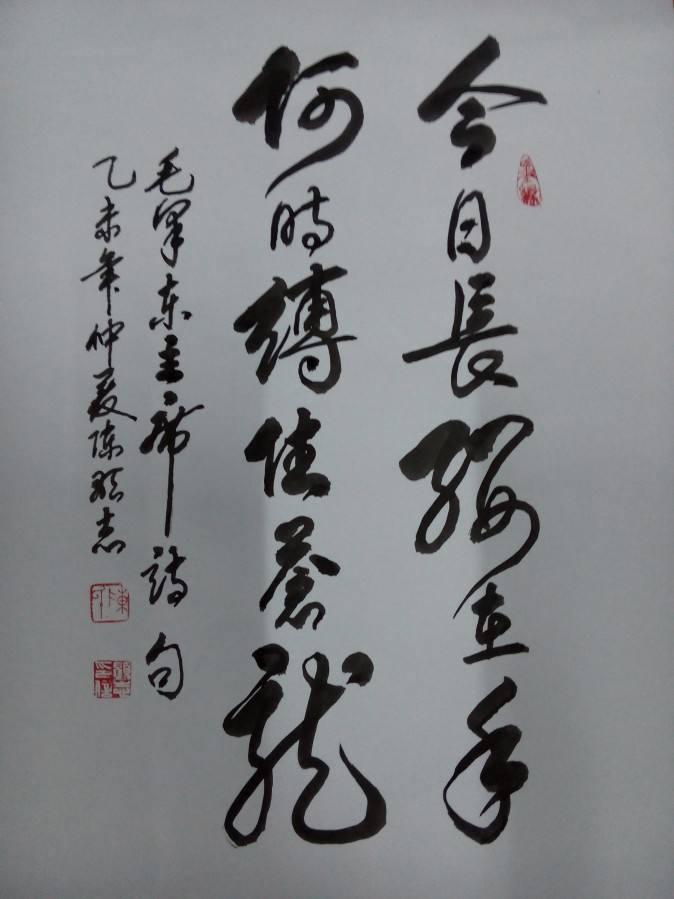 今日長纓在手
何時縛住蒼龍
毛澤东主席詩句
乙未年仲夏陈志